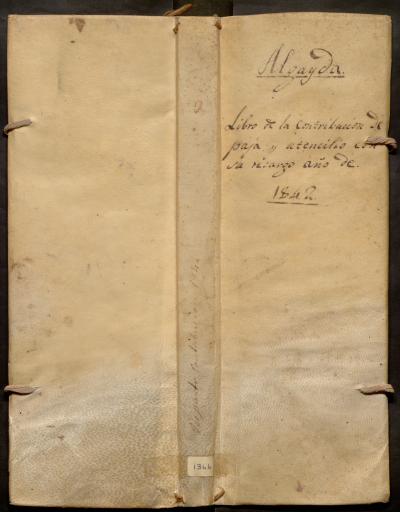 Algayda.
Libro de la Contribucion de
paja y utencilio con
su recargo año de
1842.
1344